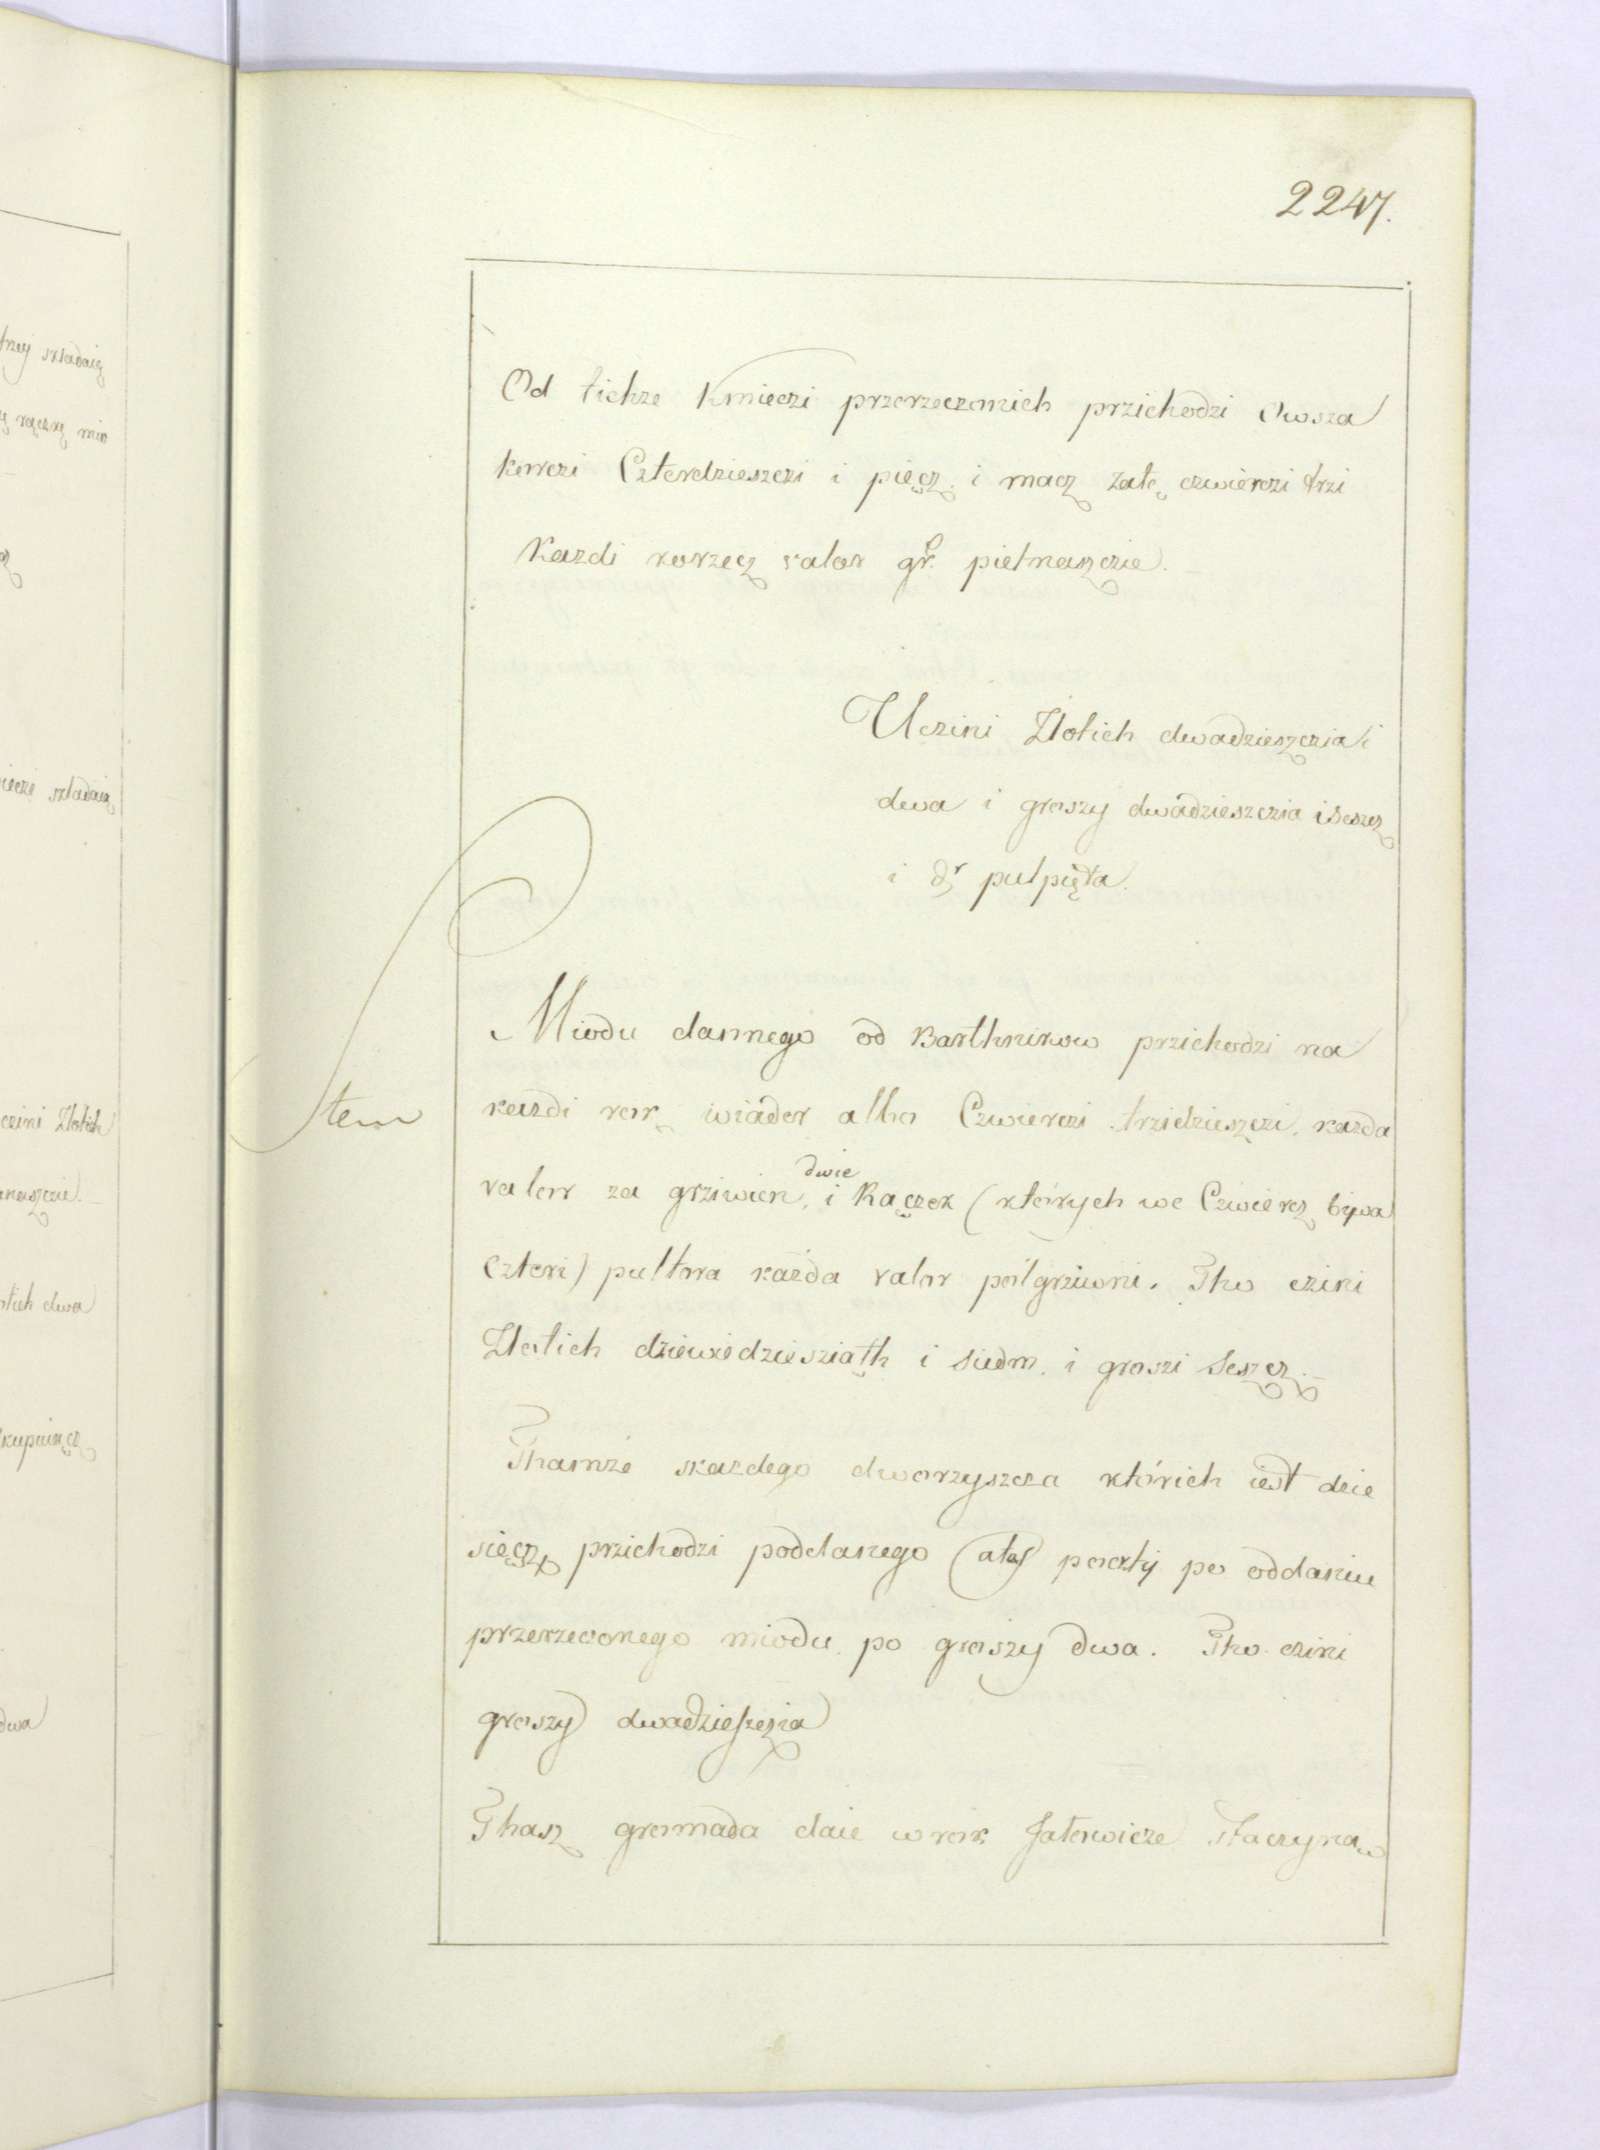 2247.
trzy składaią
ą rączkę mio
iecze składaią
czini Zlotich
anaszcie.
otich dwa
skupuiącz
dwa
Od tichze Kmieczi przerzeczonich przichodzi Owsza
korczi Czterdzieszczi i pięcz i macz zatę czwierczi trzi
Kazdi korzecz valor gr. pietnaszczie.
Uczini Zlotich dwadzieszczia i
dwa i groszy dwadzieszczia i szescz
i dr pulpięta.
Miodu dannego od Barthnikow przichodzi na
Item kazdi rok wiader albo Czwierczi trzidzieszczi, kazda
valor za grziwien dwie i Rączek (których we Czwiercz bywa
cztery) pultora każda valor pólgrziwni. Tho czini
Zlotich dziewiedziesziąth i siedm i groszi szescz.
Thamże skazdego dworzyszcza którich iest dzie
sięcz przichodzi poddanego (ałas) poczty po oddaniu
przerzeconego miodu po groszy dwa. Tho czini
groszy dwadzieszczia
Thasz gromada daie w rok Jałowicze Staczyna